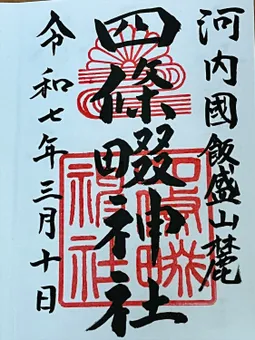 河内國飯盛山麓
四條畷神社
令和七年三月十日